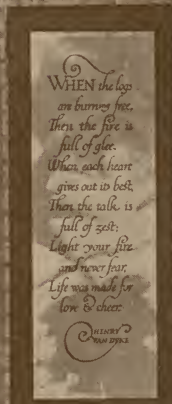 WHEN the logs
are burning free,
Then the fire is
full of glee.
When each heart
gives out its best,
Then the talk is
full of zest;
Light your fire
and never fear,
Life was made for
love & cheer.
HENRY
VAN DYKE